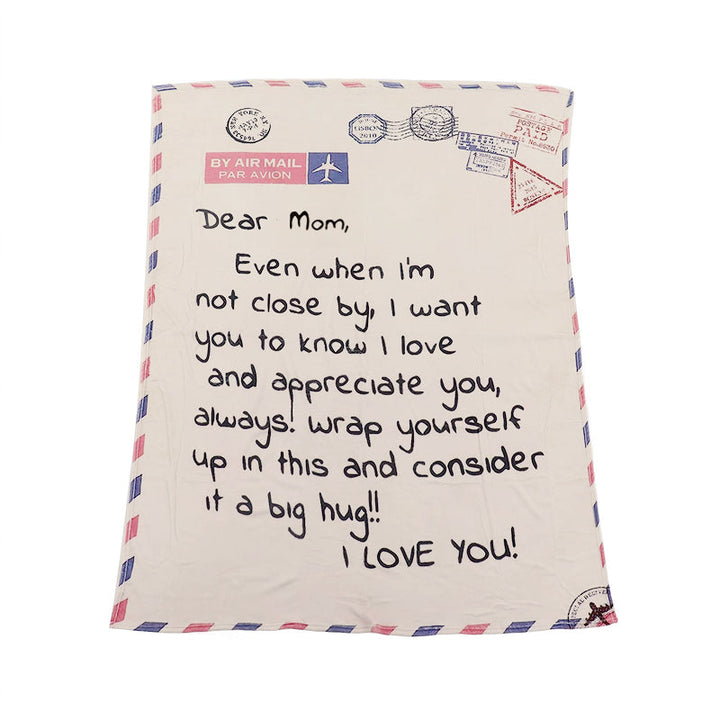 NEW YORK N.Y.
LISBON
2010
POSTAGE
PAID
Permit No.
BY AIR MAIL
PAR AVION
Dear Mom,
Even when i'm
not close by, I want
you to know I love
and appreciate you,
always! wrap yourself
up in this and consider
it a big hug!!
I LOVE YOU!